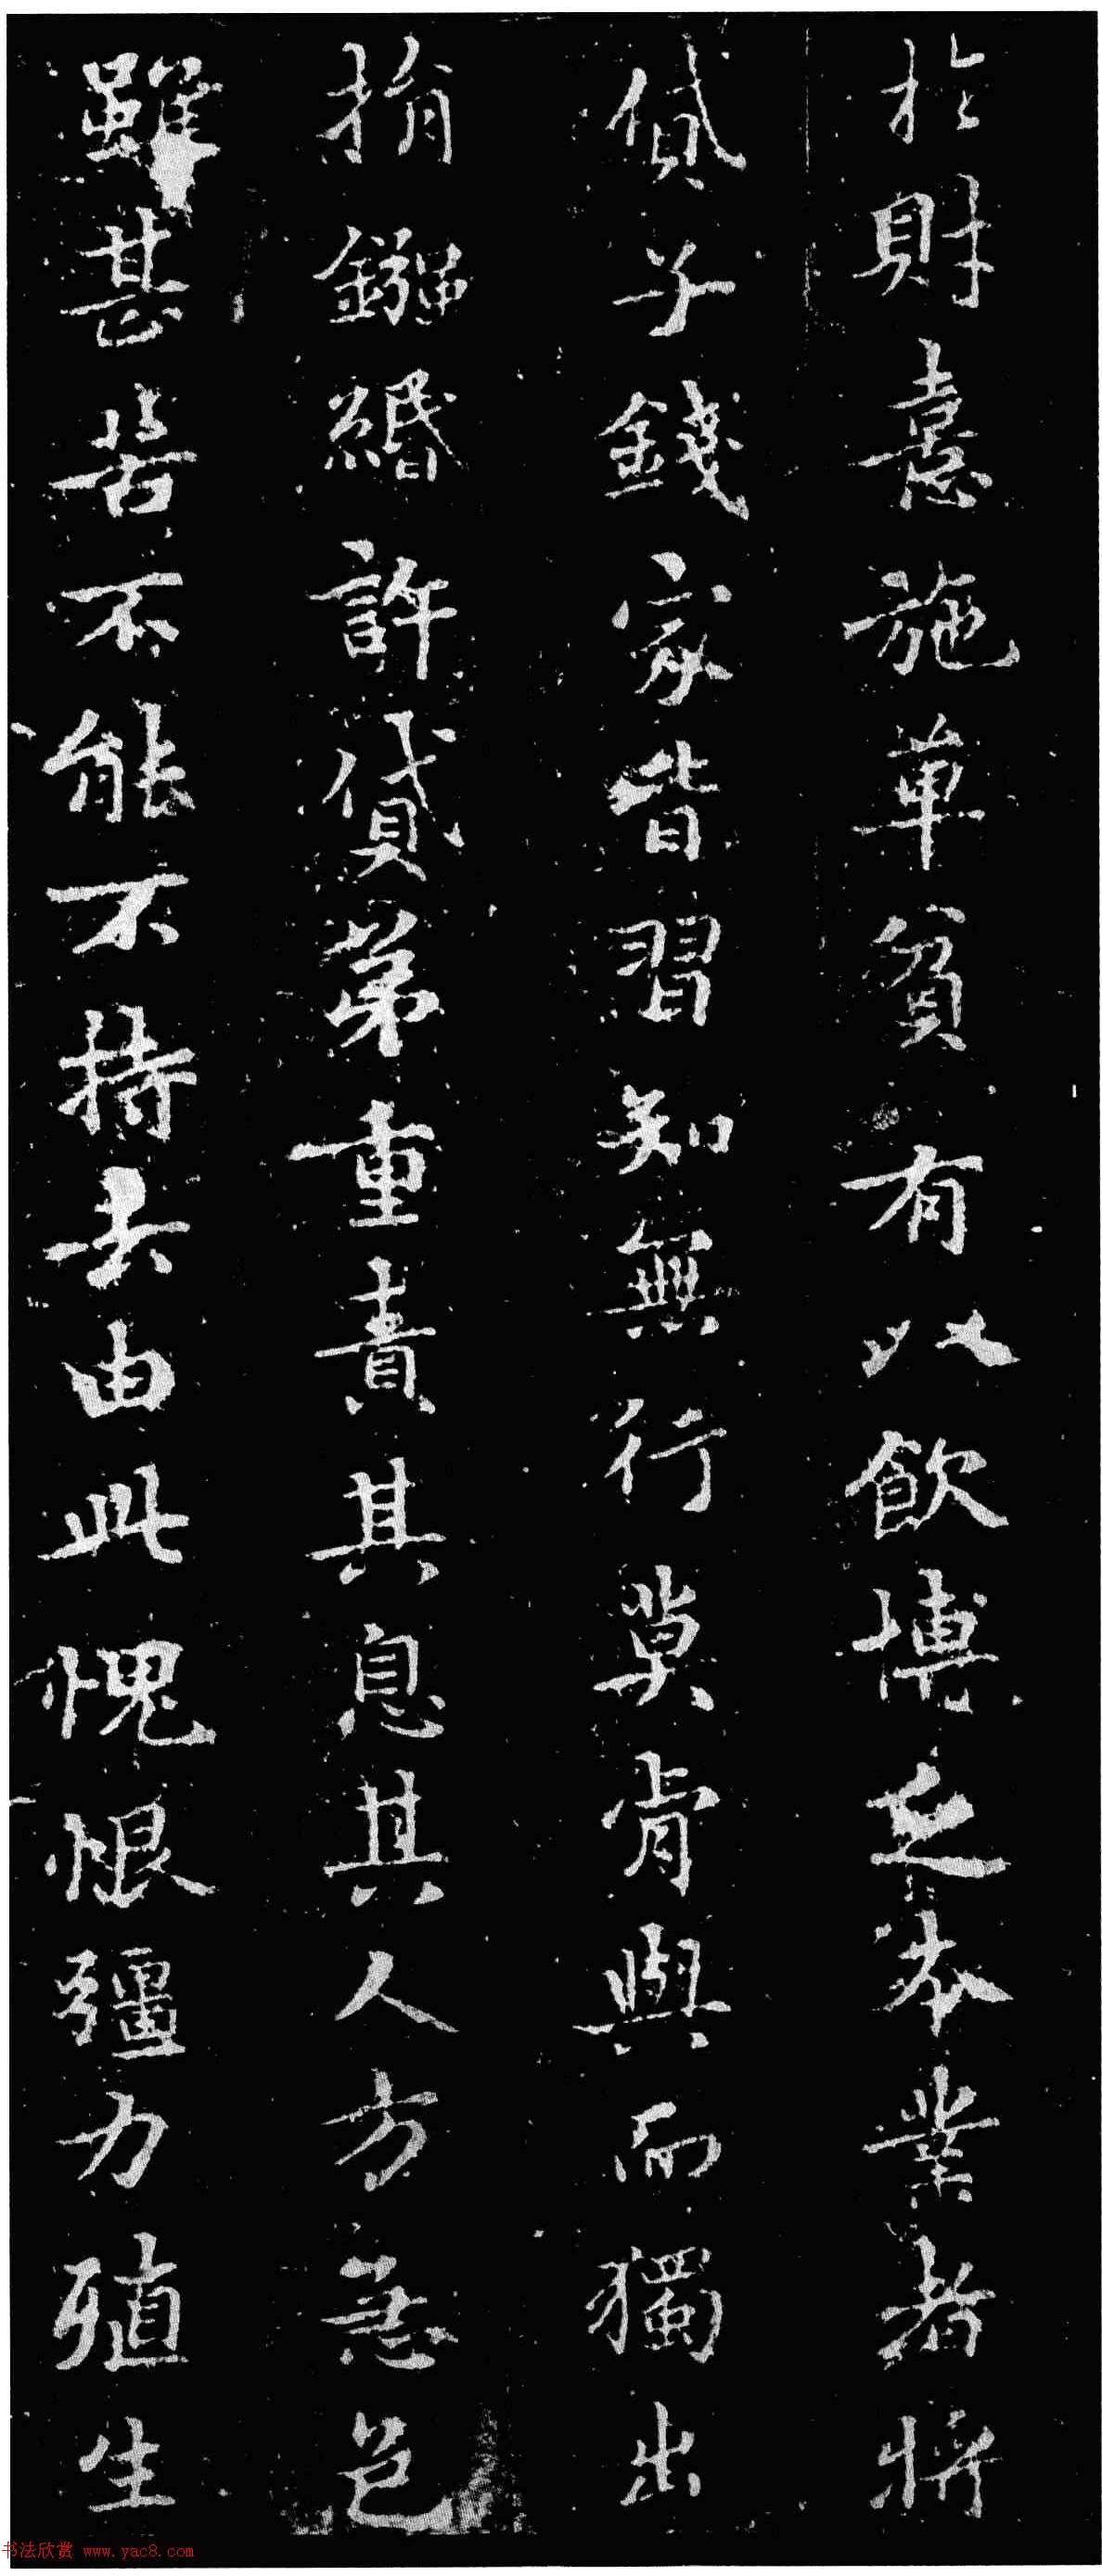 於財意施單貧有以飲博乏本業者將
貸子錢家皆習知無行莫肯與而獨出
捐鏹緡許貸第重責其息其人方無色
雖甚苦不能不持去由此愧恨彊力殖生
书法欣赏 www.yac8.com